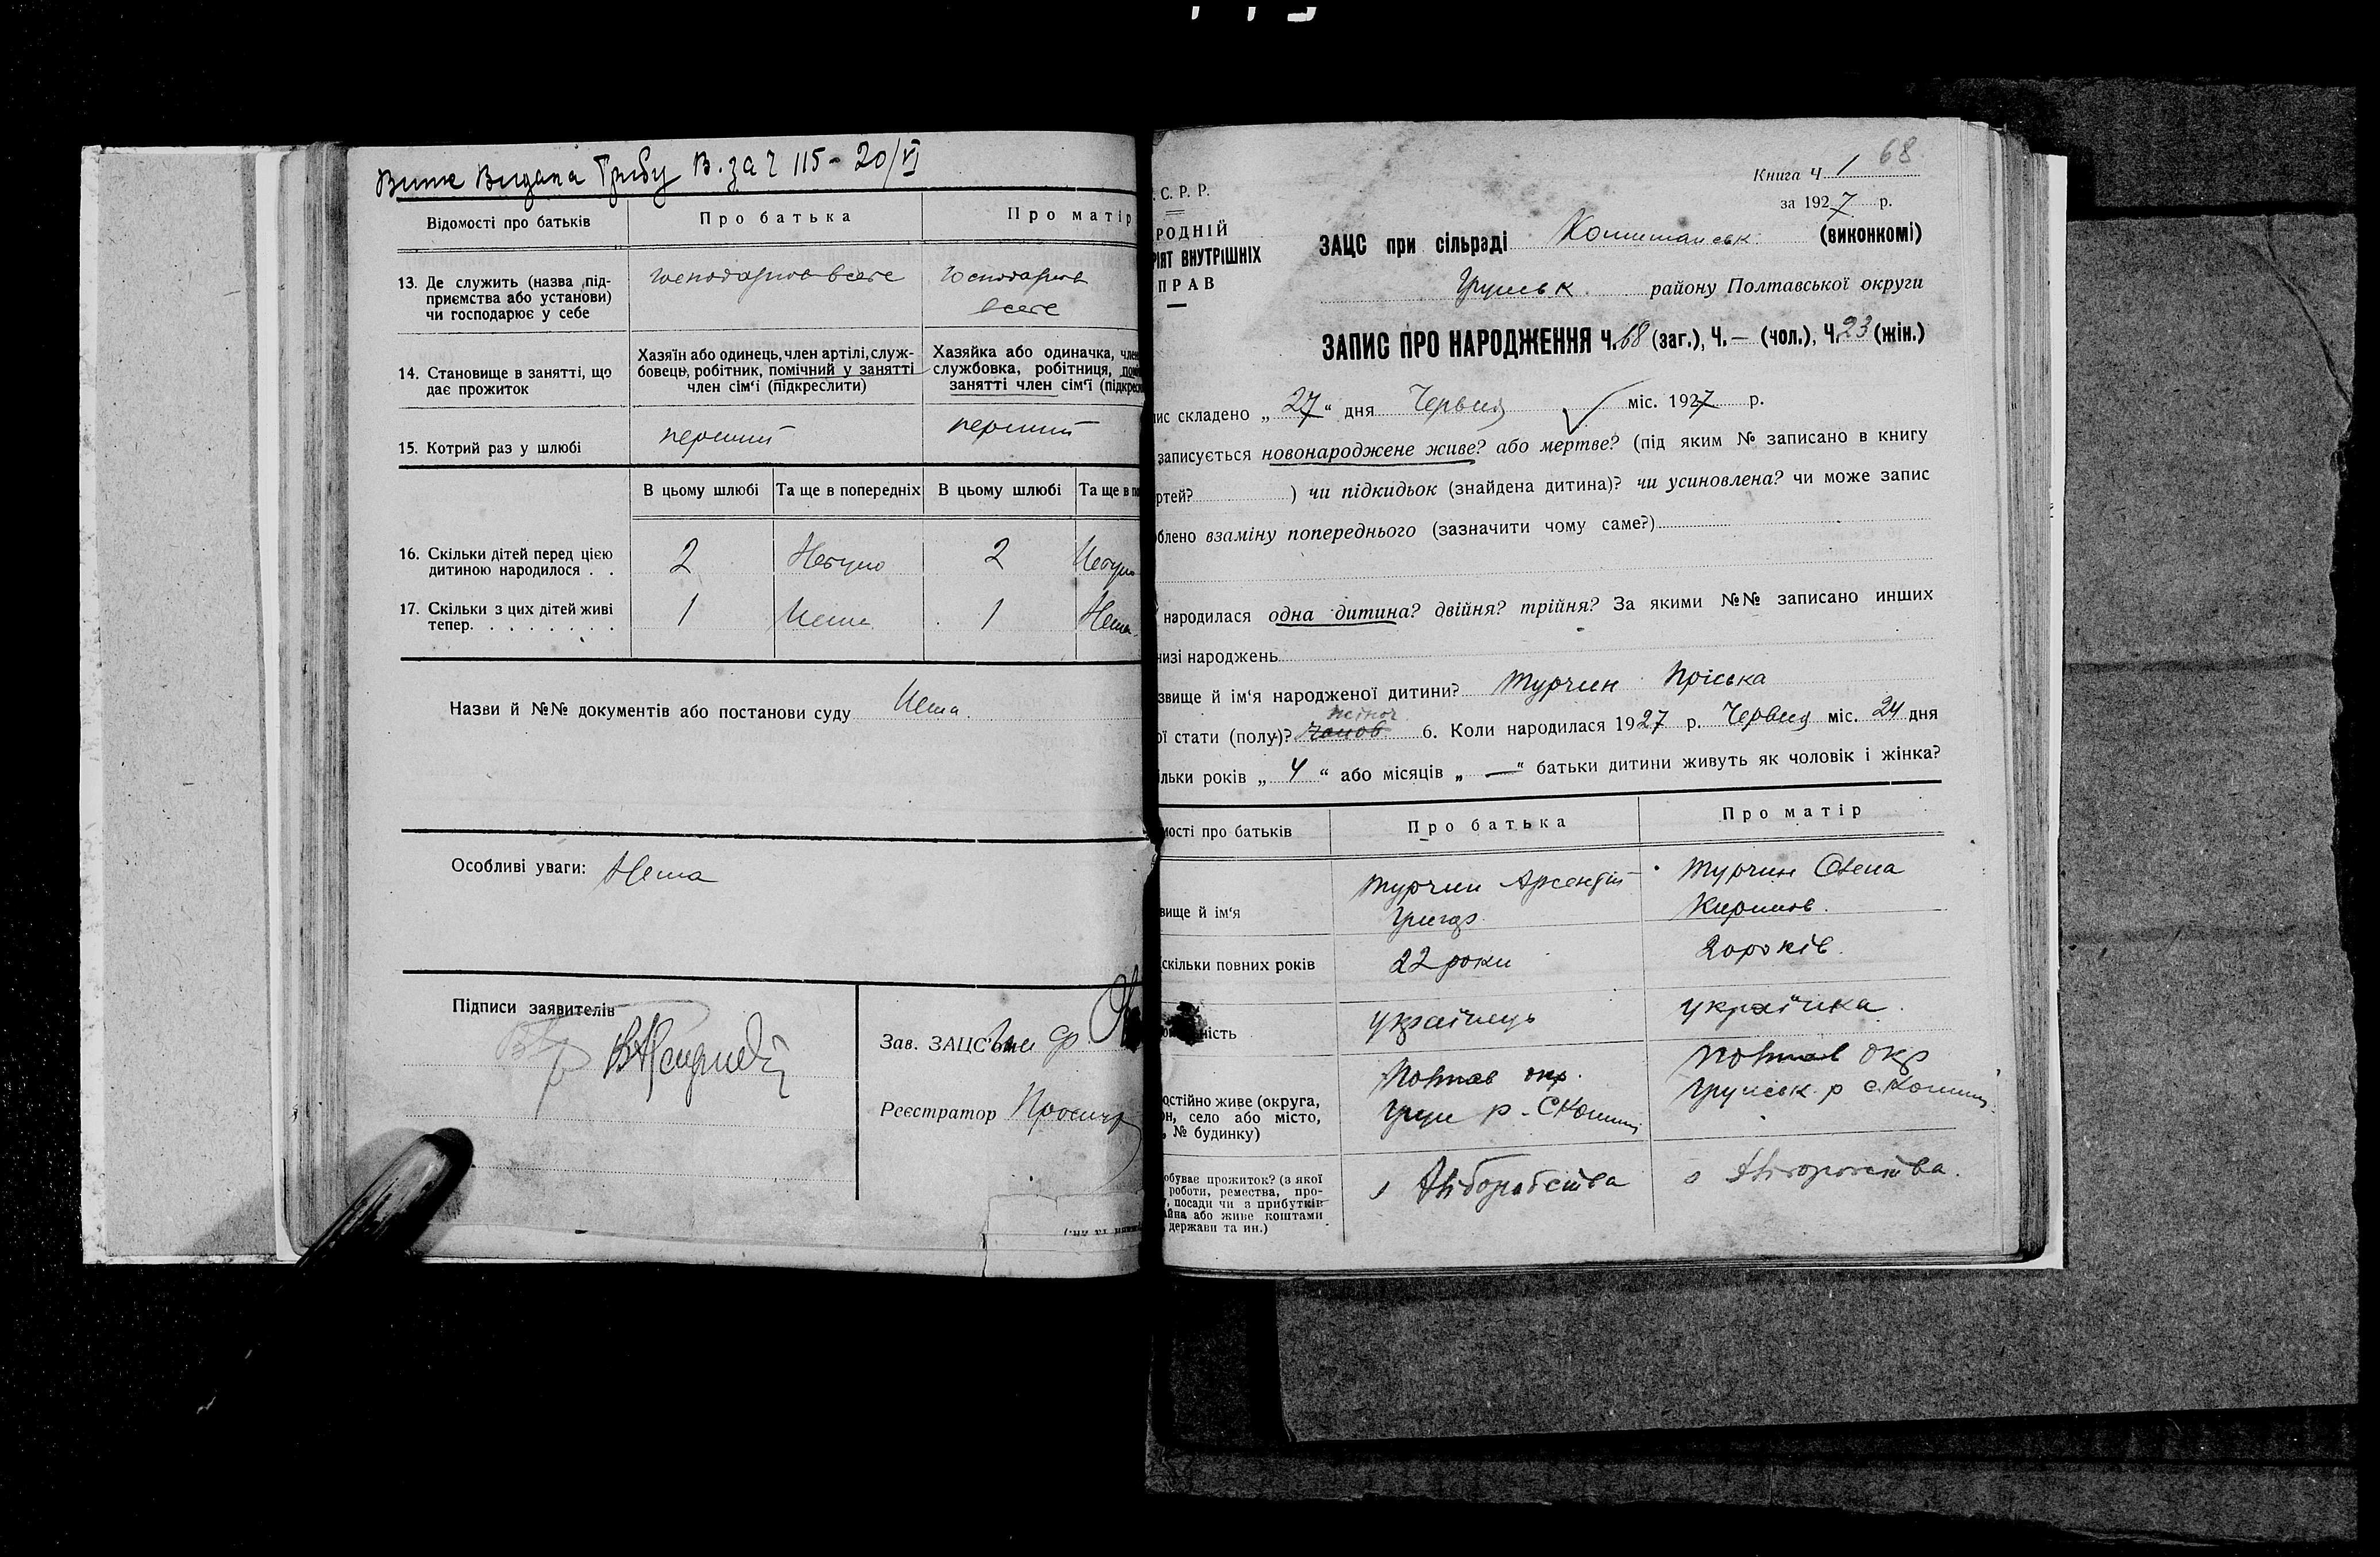 Вине Видана Грибу В. за ч 115 - 20/VI
Відомості про батьків
Про батька
Про матір
13. Де служить (назва під-
приємства або установи)
чи господарює у себе
господарює в себе
господарює
в себе
14. Становище в занятті, що
дає прожиток
Хазяїн або одинець, член артілі, служ-
бовець, робітник, помічний у занятті
член сім'ї (підкреслити)
Хазяйка або одиначка, член
службовка, робітниця, помі
занятті член сім'ї (підкрес
15. Котрий раз у шлюбі
перший
перший
В цьому шлюбі
Та ще в попередніх
В цьому шлюбі
Та ще в по
16. Скільки дітей перед цією
дитиною народилося . .
2
Небуло
2
Небуло
17. Скільки з цих дітей живі
тепер. . . . . . . .
1
Нема
1
Нема
Назви й №№ документів або постанови суду Нема.
Особливі уваги: Нема
Підписи заявителів
Зав. ЗАЦС'ом
Реєстратор
68
Книга Ч 1
за 1927 р.
. С. Р. Р.
РОДНІЙ
РІЯТ ВНУТРІШНІХ
ПРАВ
ЗАЦС при сільраді (виконкомі)
Грунськ району Полтавської округи
ЗАПИС ПРО НАРОДЖЕННЯ Ч. 68 (заг.), Ч. — (чол.), Ч. 23 (жін.)
пис складено „ 27 “ дня Червня міс. 1927 р.
записується новонароджене живе? або мертве? (під яким № записано в книгу
ртей? ) чи підкидьок (знайдена дитина)? чи усиновлена? чи може запис
блено взаміну попереднього (зазначити чому саме?)
народилася одна дитина? двійня? трійня? За якими №№ записано инших
низі народжень
звище й ім'я народженої дитини? Турчин Пріська
жіноч
ої стати (полу)? чолов 6. Коли народилася 1927 р. Червня міс. 24 дня
ільки років „ 4 “ або місяців „ — “ батьки дитини живуть як чоловік і жінка?
мості про батьків
Про батька
Про матір
звище й ім'я
Турчин Арсентій
Григор
Турчин Олена
Кирилов.
скільки повних років
22 роки
20 років.
ність
українець
українка.
остійно живе (округа,
он, село або місто,
, № будинку)
Полтав окр.
Грун р - с Кошм
Полтав окр
Грунськ. р с. Кошм
обуває прожиток? (з якої
роботи, ремества, про-
, посади чи з прибутків
айна або живе коштами
держави та ин.)
з хліборобства
з хліборобства.